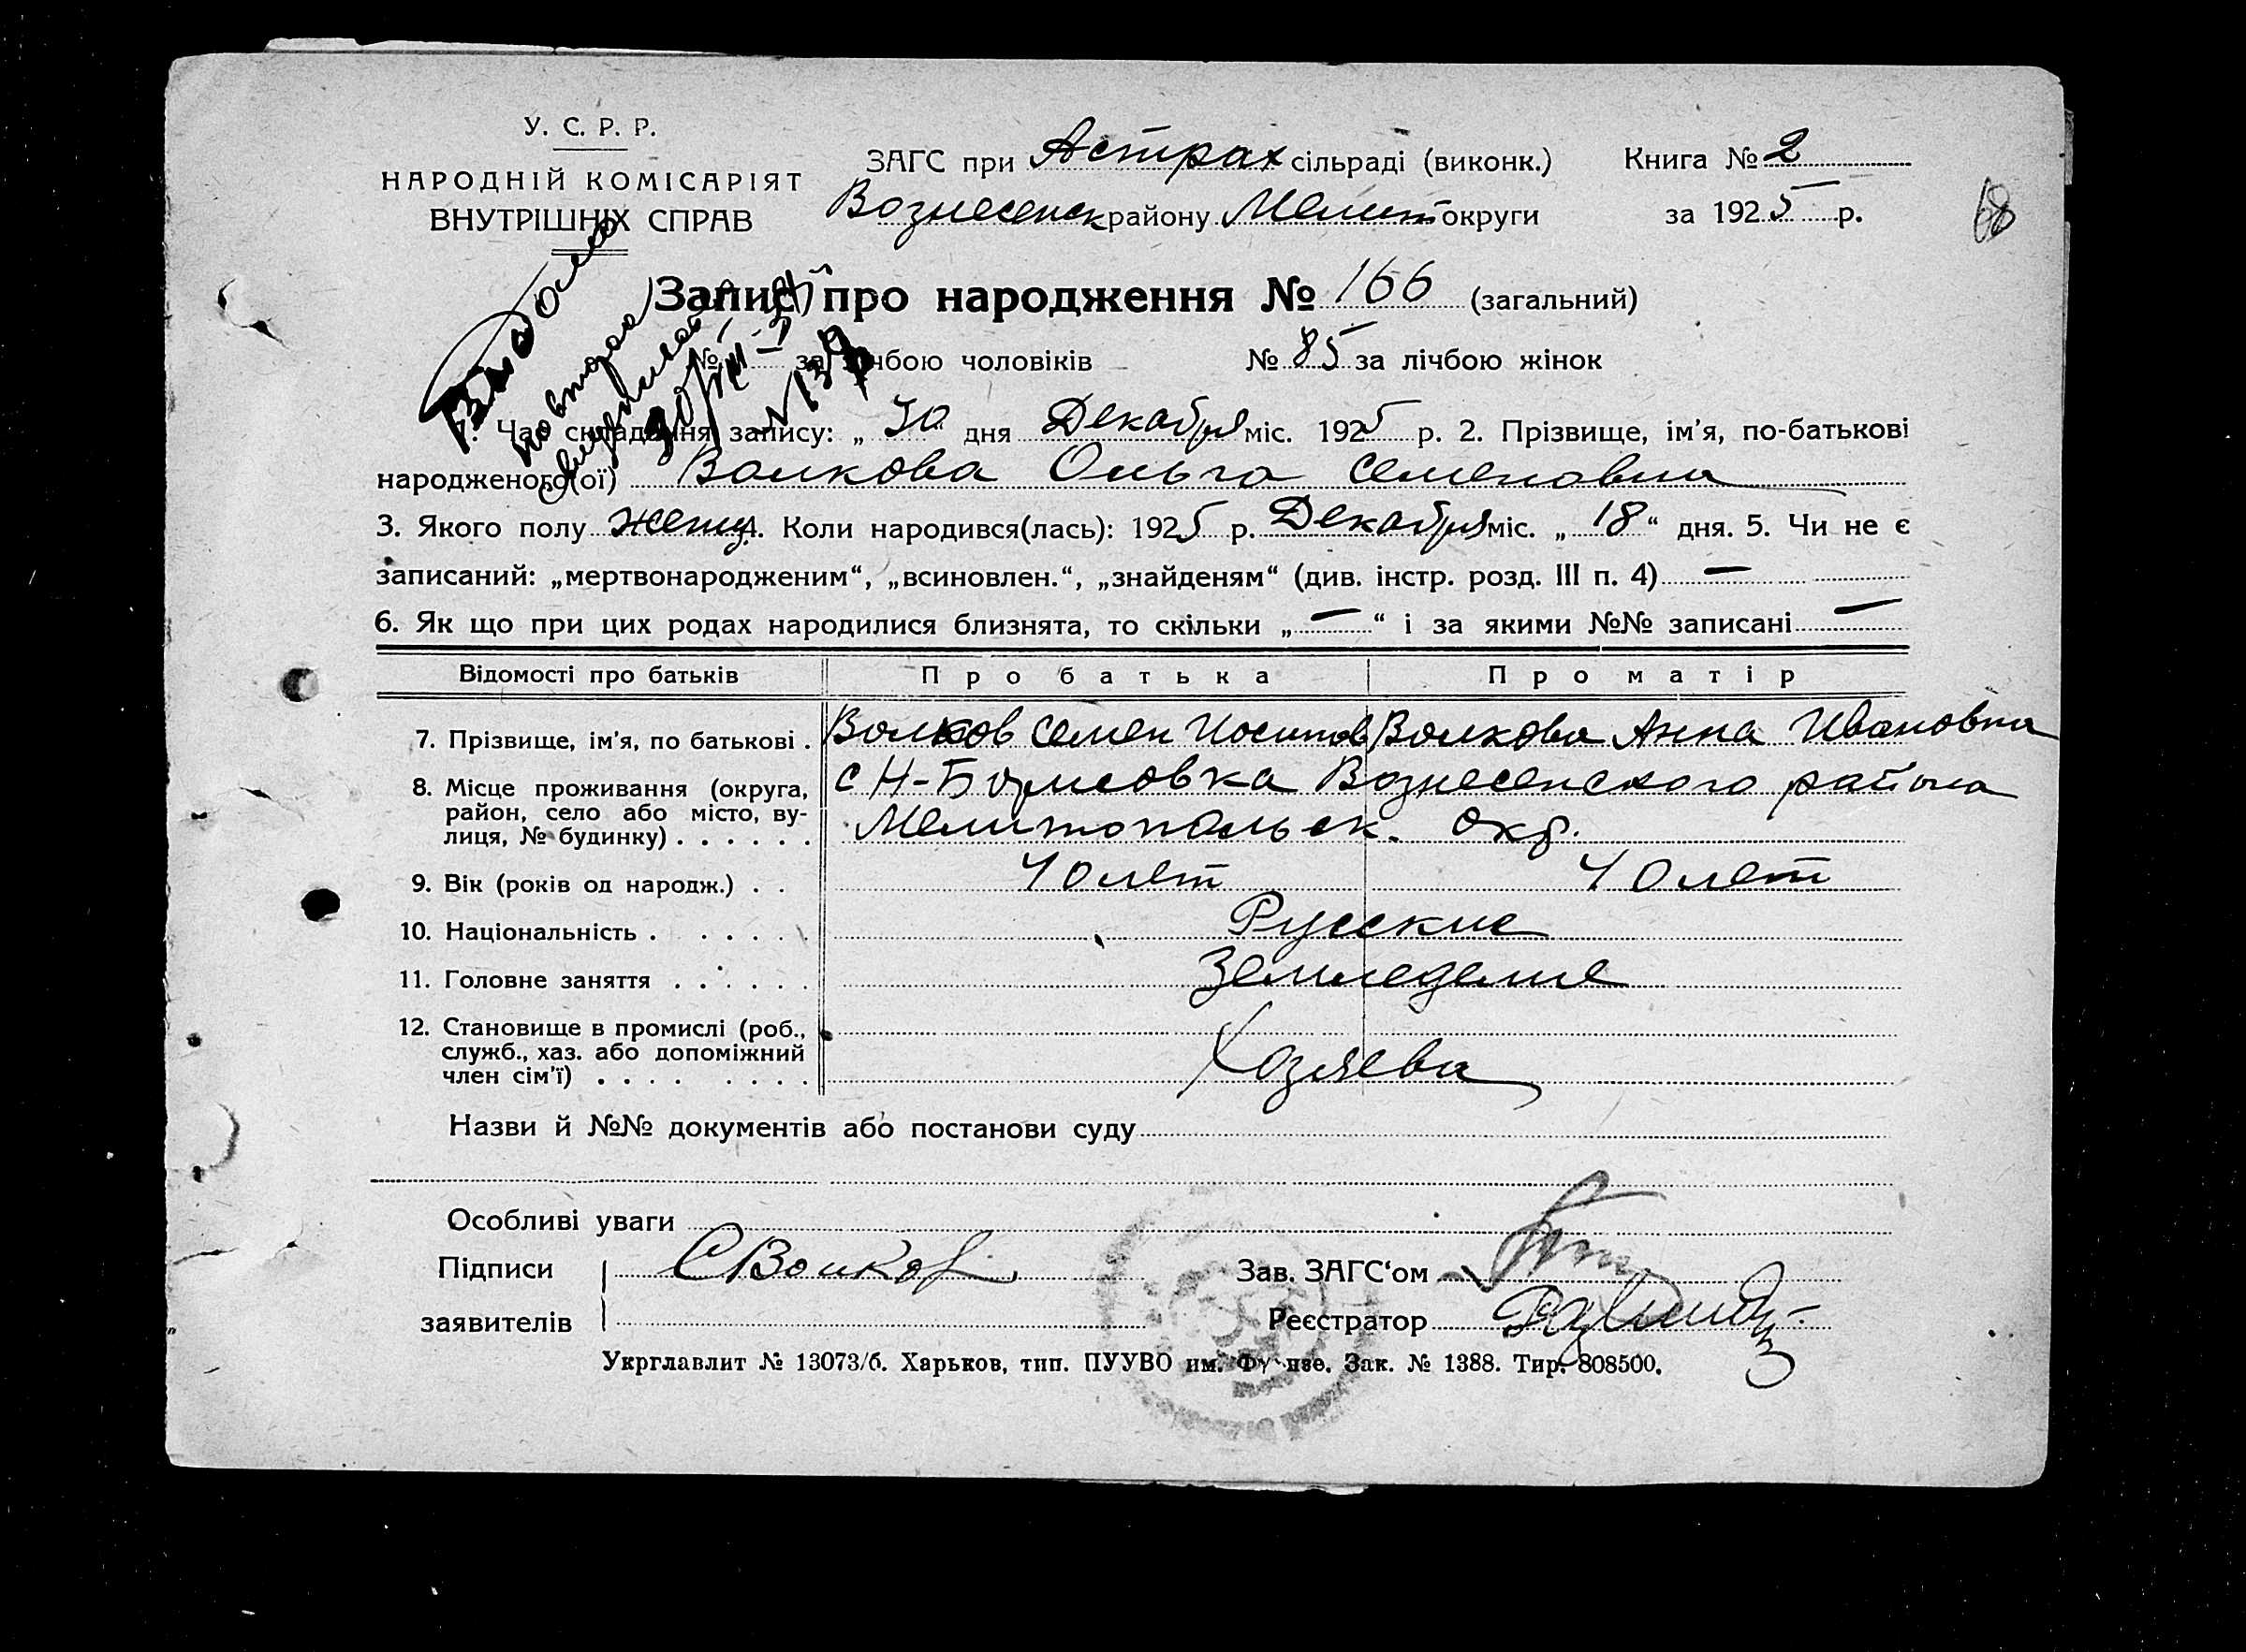 У. С. Р. Р.
НАРОДНІЙ КОМІСАРІЯТ
ВНУТРІШНІХ СПРАВ
ЗАГС при Астрах сільраді (виконк.) Книга № 2
Вознесенск району Мелит округи за 1925 р.
68
Запис про народження № 166 (загальний)
№ за лічбою чоловіків № 85 за лічбою жінок
Выдано
повторное
свидетельство
1. Час складання запису: „30“ дня Декабря міс. 1925 р. 2. Прізвище, ім'я, по-батькові
народженого(ої) Волкова Ольга Семеновна
3. Якого полу женц 4. Коли народився(лась): 1925 р. Декабря міс. „18“ дня. 5. Чи не є
записаний: „мертвонародженим“, „всиновлен.“, „знайденям“ (див. інстр. розд. III п. 4) —
6. Як що при цих родах народилися близнята, то скільки „—“ і за якими №№ записані —
Відомості про батьків Про батька Про матір
7. Прізвище, ім'я, по батькові . Волков Семен Иосипов Волкова Анна Ивановна
8. Місце проживання (округа, район, село або місто, вулиця, № будинку) . . . . . . с Н-Борисовка Вознесенского района
Мелитопольск. окр.
9. Вік (років од народж.) . . 40 лет 40 лет
10. Національність . . . . . . Русские
11. Головне заняття . . . . . . Земледелие
12. Становище в промислі (роб., служб., хаз. або допоміжний член сім'ї) . . . . . . . . Хозяева
Назви й №№ документів або постанови суду
Особливі уваги
Підписи СВолков Зав. ЗАГС'ом
заявителів Реєстратор
Укрглавлит № 13073/б. Харьков, тип. ПУУВО им. Фрунзе. Зак. № 1388. Тир. 808500.